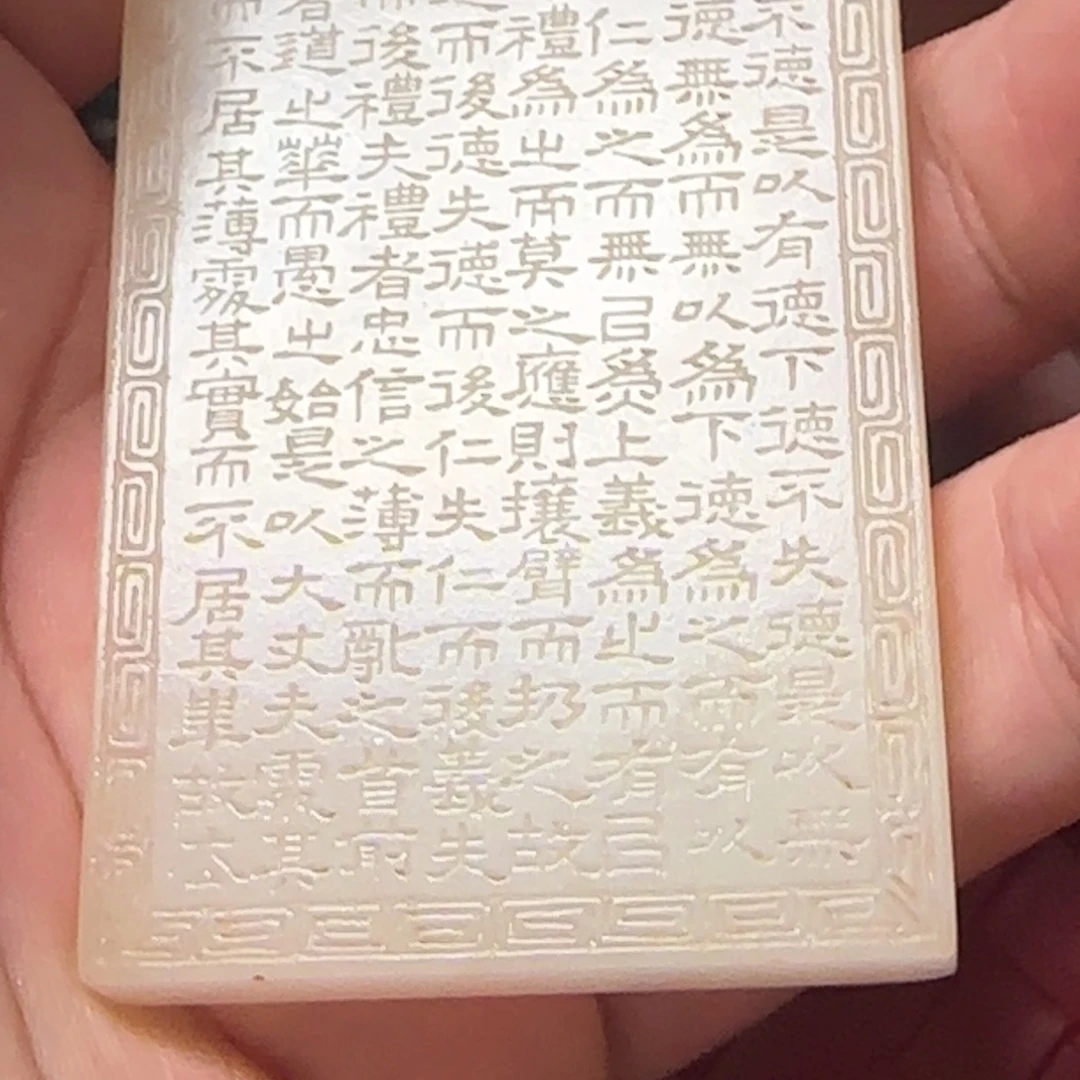 不德是以有德下德不失德是以無
德無爲而無以爲下德爲之而有以
仁爲之而無己爲上義爲之而有己
禮爲之而莫之應則攘臂而扔之故
之而後德失德而後仁失仁而後義失
而後禮夫禮者忠信之薄而亂之首前
者道之華而愚之始是以大丈夫處其
而不居其薄處其實而不居其華故去